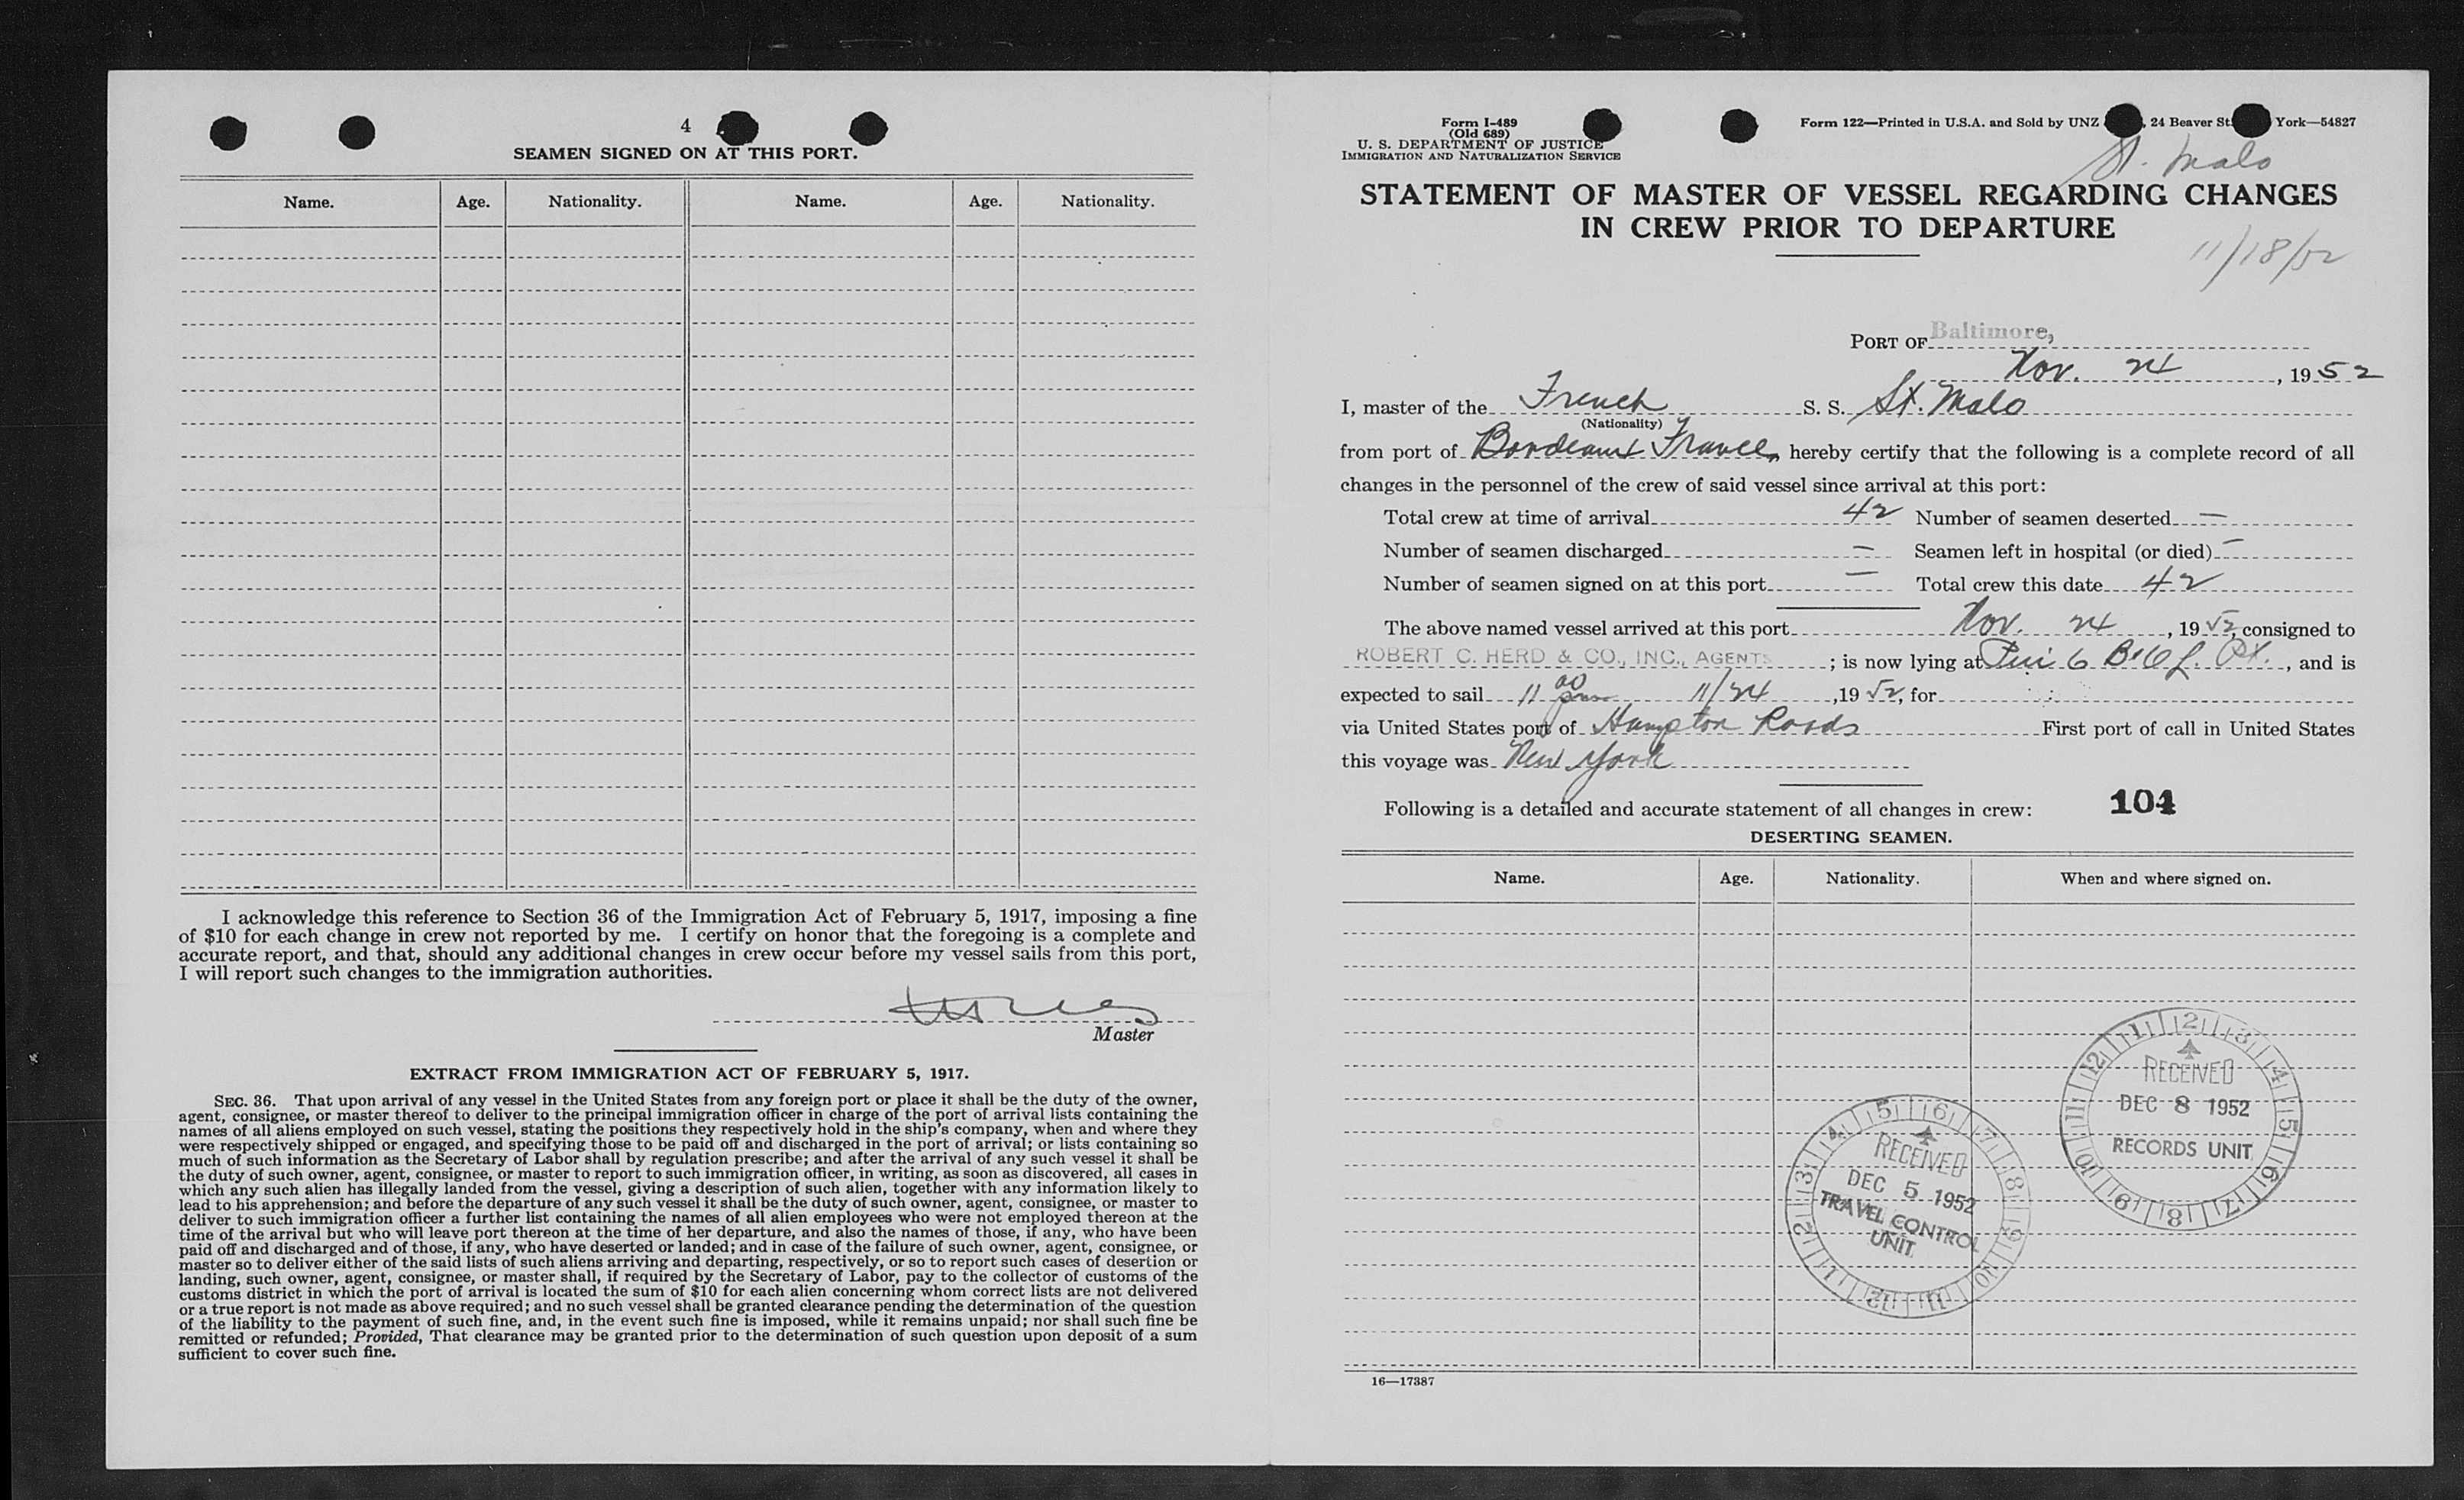 4
SEAMEN SIGNED ON AT THIS PORT.
Name. Age. Nationality. Name. Age. Nationality.
I acknowledge this reference to Section 36 of the Immigration Act of February 5, 1917, imposing a fine
of $10 for each change in crew not reported by me. I certify on honor that the foregoing is a complete and
accurate report, and that, should any additional changes in crew occur before my vessel sails from this port,
I will report such changes to the immigration authorities.
Master
EXTRACT FROM IMMIGRATION ACT OF FEBRUARY 5, 1917.
SEC. 36. That upon arrival of any vessel in the United States from any foreign port or place it shall be the duty of the owner,
agent, consignee, or master thereof to deliver to the principal immigration officer in charge of the port of arrival lists containing the
names of all aliens employed on such vessel, stating the positions they respectively hold in the ship's company, when and where they
were respectively shipped or engaged, and specifying those to be paid off and discharged in the port of arrival; or lists containing so
much of such information as the Secretary of Labor shall by regulation prescribe; and after the arrival of any such vessel it shall be
the duty of such owner, agent, consignee, or master to report to such immigration officer, in writing, as soon as discovered, all cases in
which any such alien has illegally landed from the vessel, giving a description of such alien, together with any information likely to
lead to his apprehension; and before the departure of any such vessel it shall be the duty of such owner, agent, consignee, or master to
deliver to such immigration officer a further list containing the names of all alien employees who were not employed thereon at the
time of the arrival but who will leave port thereon at the time of her departure, and also the names of those, if any, who have been
paid off and discharged and of those, if any, who have deserted or landed; and in case of the failure of such owner, agent, consignee, or
master so to deliver either of the said lists of such aliens arriving and departing, respectively, or so to report such cases of desertion or
landing, such owner, agent, consignee, or master shall, if required by the Secretary of Labor, pay to the collector of customs of the
customs district in which the port of arrival is located the sum of $10 for each alien concerning whom correct lists are not delivered
or a true report is not made as above required; and no such vessel shall be granted clearance pending the determination of the question
of the liability to the payment of such fine, and, in the event such fine is imposed, while it remains unpaid; nor shall such fine be
remitted or refunded; Provided, That clearance may be granted prior to the determination of such question upon deposit of a sum
sufficient to cover such fine.
Form I-489
(Old 689)
U. S. DEPARTMENT OF JUSTICE
IMMIGRATION AND NATURALIZATION SERVICE
Form 122—Printed in U.S.A. and Sold by UNZ , 24 Beaver St. York—54827
St. Malo
STATEMENT OF MASTER OF VESSEL REGARDING CHANGES
IN CREW PRIOR TO DEPARTURE
11/18/52
PORT OF Baltimore,
Nov. 24, 1952
I, master of the French S. S. St. Malo
(Nationality)
from port of Bordeaux France, hereby certify that the following is a complete record of all
changes in the personnel of the crew of said vessel since arrival at this port:
Total crew at time of arrival 42 Number of seamen deserted —
Number of seamen discharged — Seamen left in hospital (or died) —
Number of seamen signed on at this port — Total crew this date 42
The above named vessel arrived at this port Nov. 24, 1952, consigned to
ROBERT C. HERD & CO., INC., AGENTS; is now lying at Pier 6 B&O L. Pt., and is
expected to sail 11 11/24, 1952, for
via United States port of Hampton Roads First port of call in United States
this voyage was New York
Following is a detailed and accurate statement of all changes in crew: 104
DESERTING SEAMEN.
Name. Age. Nationality. When and where signed on.
RECEIVED
DEC 8 1952
RECORDS UNIT
RECEIVED
DEC 5 1952
TRAVEL CONTROL
UNIT
16—17387